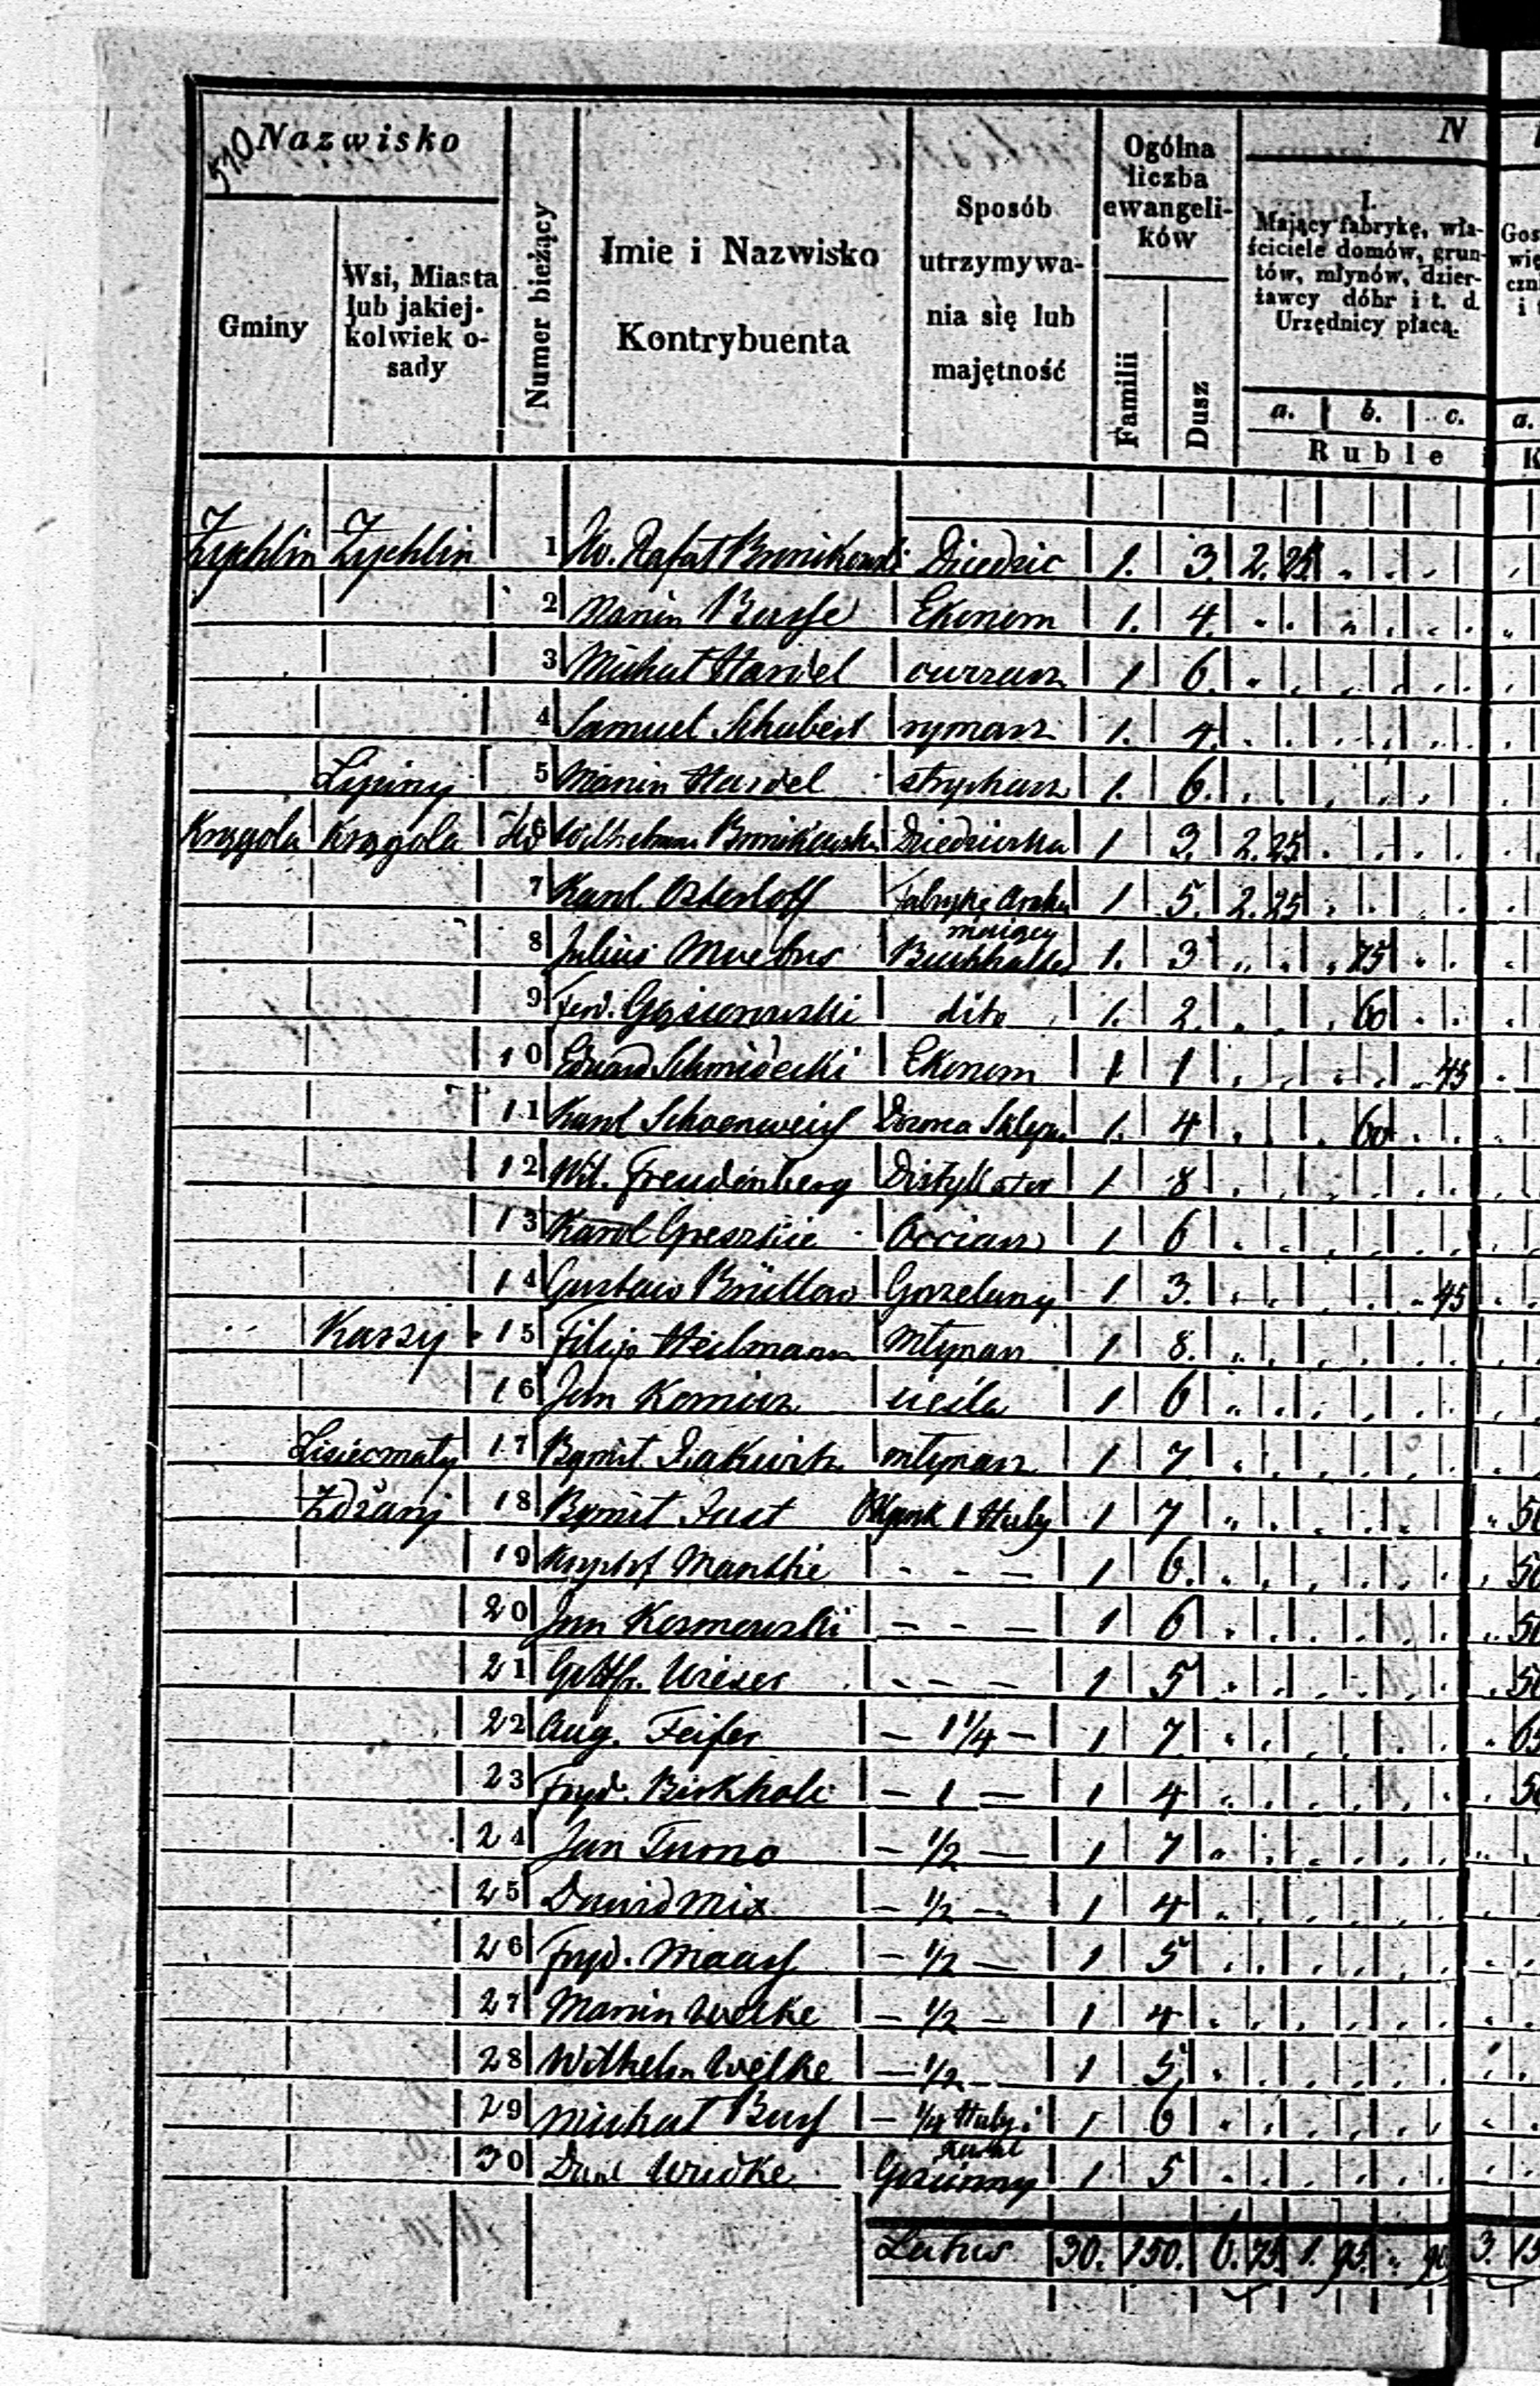 510 Nazwisko
Gminy
Wsi, Miasta
lub jakiej-
kolwiek o-
sady
Numer bieżący
Imie i Nazwisko
Kontrybuenta
Sposób
utrzymywa-
nia się lub
majętność
Ogólna
liczba
ewangeli-
ków
Familii
Dusz
N
I.
Mający fabrykę, wła-
ściciele domów, grun-
tów, młynów, dzier-
żawcy dóbr i t. d.
Urzędnicy płacą.
a. b. c.
Ruble
Gos
wię
czn
i
a.
K
Zychlin Zychlin 1 W. Rafał Bronikowski Dziedzic 1. 3. 2. 25
2 Marcin Busse Ekonom 1. 4.
3 Michał Hardel owczarz 1 6.
4 Samuel Schubert rymarz 1. 4.
Lipiny 5 Marcin Hardel strycharz 1. 6.
Krzygola Krzygola 6 Wilhelmina Bronikowska Dziedziczka 1 3. 2. 25
7 Karol Osterloff Fabrykę Araku 1 5. 2. 25
mający
8 Julius Buchhalter 1. 3 75
9 Ferd. Gąsiorowski dito 1. 2. 60
10 Eduard Schmidecki Ekonom 1 1 45
11 Karol Schoenweis Dozorca 1. 4 60
12 Wil. Freudenberg Distyllator 1 8
13 Karol Greszkie Occiarz 1 6
14 Gustaw Büttow Gorzelany 1 3. 45
Karszy 15 Filip Heilmann Młynarz 1 8.
16 Jan cieśla 1 6
Lisiecmały 17 młynarz 1 7
Zdżary 18 Just Okupnik 1 Huby 1 7 50
19 Krysztof Mantkie - - - 1 6. 50
20 Jan Kosmowski - - - 1 6 50
21 Gottfr. Wieser - - - 1 5 50
22 Aug. Feifer - 1 1/4 - 1 7
23 Fryd. Birkholc - 1 - 1 4 50
24 Jan Turno - 1/2 - 1 7
25 Dawid Mix - 1/2 - 1 4
26 Fryd. Maass - 1/2 - 1 5
27 Marcin Welke - 1/2 - 1 4
28 Wilhelm Welke - 1/2 - 1 5
29 Michał Buss - 1/4 Huby i 1 6
30 Wudke 1 5
Latus 30. 150. 6. 75 1. 95. 90 3. 15